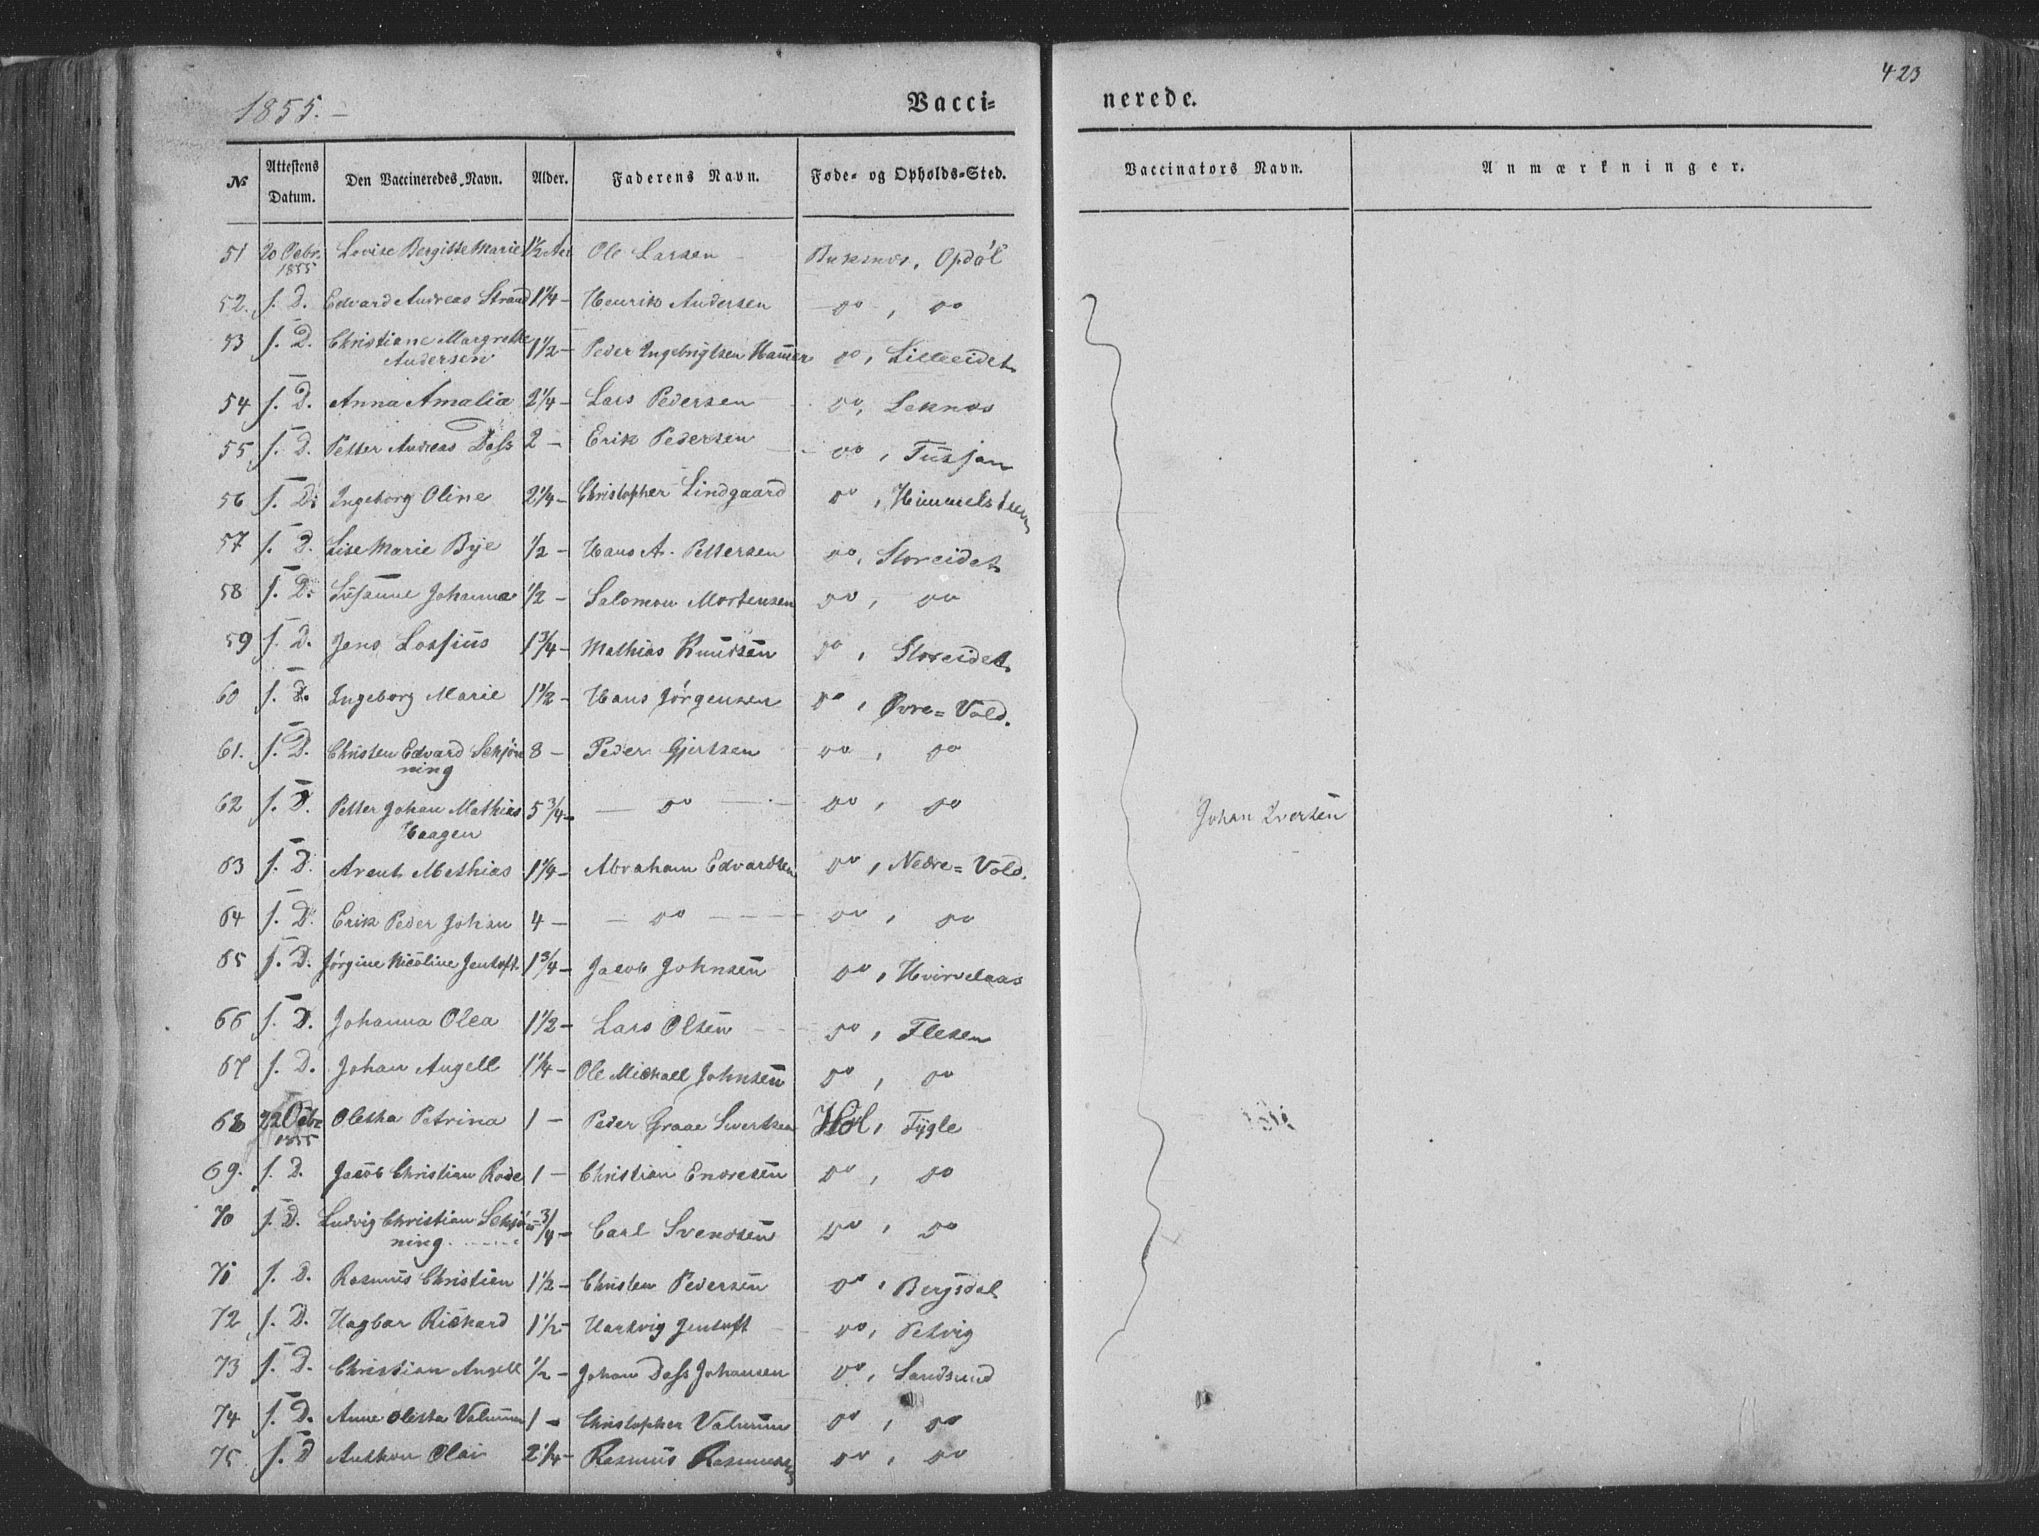 423
1855.-
Vacci=
nerede.
№ Attestens Datum. Den Vaccineredes Navn. Alder. Faderens Navn. Føde- og Opholds-Sted.
Vaccinators Navn. Anmærkninger.
51 20 Octbr. 1855 Lovise Bergitte Marie 1½ Aar Ole Larsen Buksnæs, Opdøl
52. s. D. Edvard Andreas Strand 1¼ - Henrik Andersen do, do
53 s. D. Christiane Margrethe Andersen 1½ - Peder Ingebrigtsen Hammer do, Lilleeidet
54 s. D. Anna Amalia 2¼ - Lars Pedersen do, Leknæs
55 s. D. Petter Andreas Dass 2 - Erik Pedersen do,
56 s. D. Ingeborg Oline 2¼ - Christopher Lindgaard do,
57 s. D. Lise Marie Bye ½ - Hans A. Pettersen do, Storeidet
58 s. D. Susanne Johanna ½ - Salomon Mortensen do, do
59 s. D. Jens Lossius 1¾ - Mathias Knudsen do, Storeidet
60 s. D. Ingeborg Marie 1½ - Hans Jörgensen do, Øvre=Vold.
61. s. D. Christen Edvard Schjönning 8 - Peder Gjertsen do, do
62 s. D. Petter Johan Mathias Haagen 5¾ - do do, do
Johan Iversen
63 s. D. Arent Mathias 1¼ - Abraham Edvardsen do, Nedre=Vold.
64 s. D. Erik Peder Johan 4 - do do, do
65 s. D. Jörgine Nicoline Jentoft 1¾ - Jacob Johnsen do, Hvirvelaas
66 s. D. Johanna Olea 1½ - Lars Olsen do, Flesen
67 s. D. Johan Angell 1¼ - Ole Michael Johnsen do, do
68 22 Octbr 1855 Oletha Petrina 1 - Peder Graae Sivertsen Hol, Fygle
69. s. D. Jacob Christian Rode 1 - Christian Endresen do, do
70 s. D. Ludvig Christian Schjönning ¾ - Carl Svendsen do, do
71 s. D. Rasmus Christian 1½ - Christen Pedersen do, Bergsdal
72 s. D. Hagbar Richard 1½ - Hartvig Jentoft do, Petvig
73 s. D. Christian Angell ½ - Johan Dass Johansen do, Sandsund
74 s. D. Anne Oletha 1 - Christopher do, do
75 s. D Anthon Olai 2¼ - Rasmus Rasmussen do, do